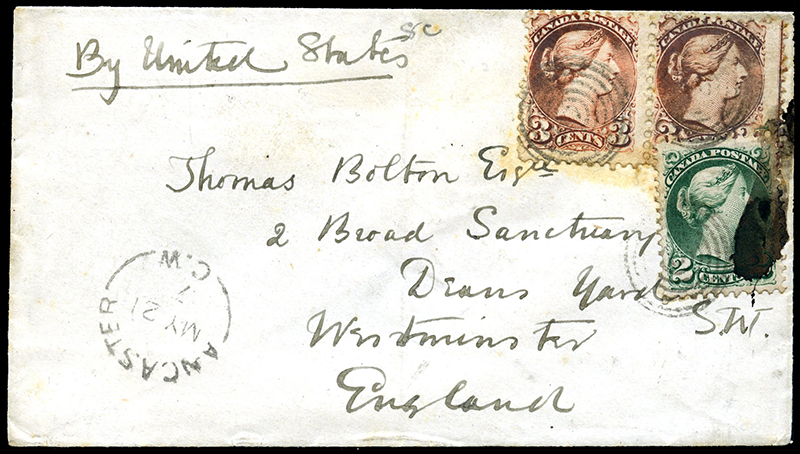 By United States
8c
CANADA POSTAGE
3 CENTS 3
CANADA POSTAGE
3 CENTS
CANADA POSTAGE
2 CENTS
Thomas Bolton Esqre
2 Broad Sanctuary
Deans Yard
Westminster S.W.
England
ANCASTER
C.W.
MY 21